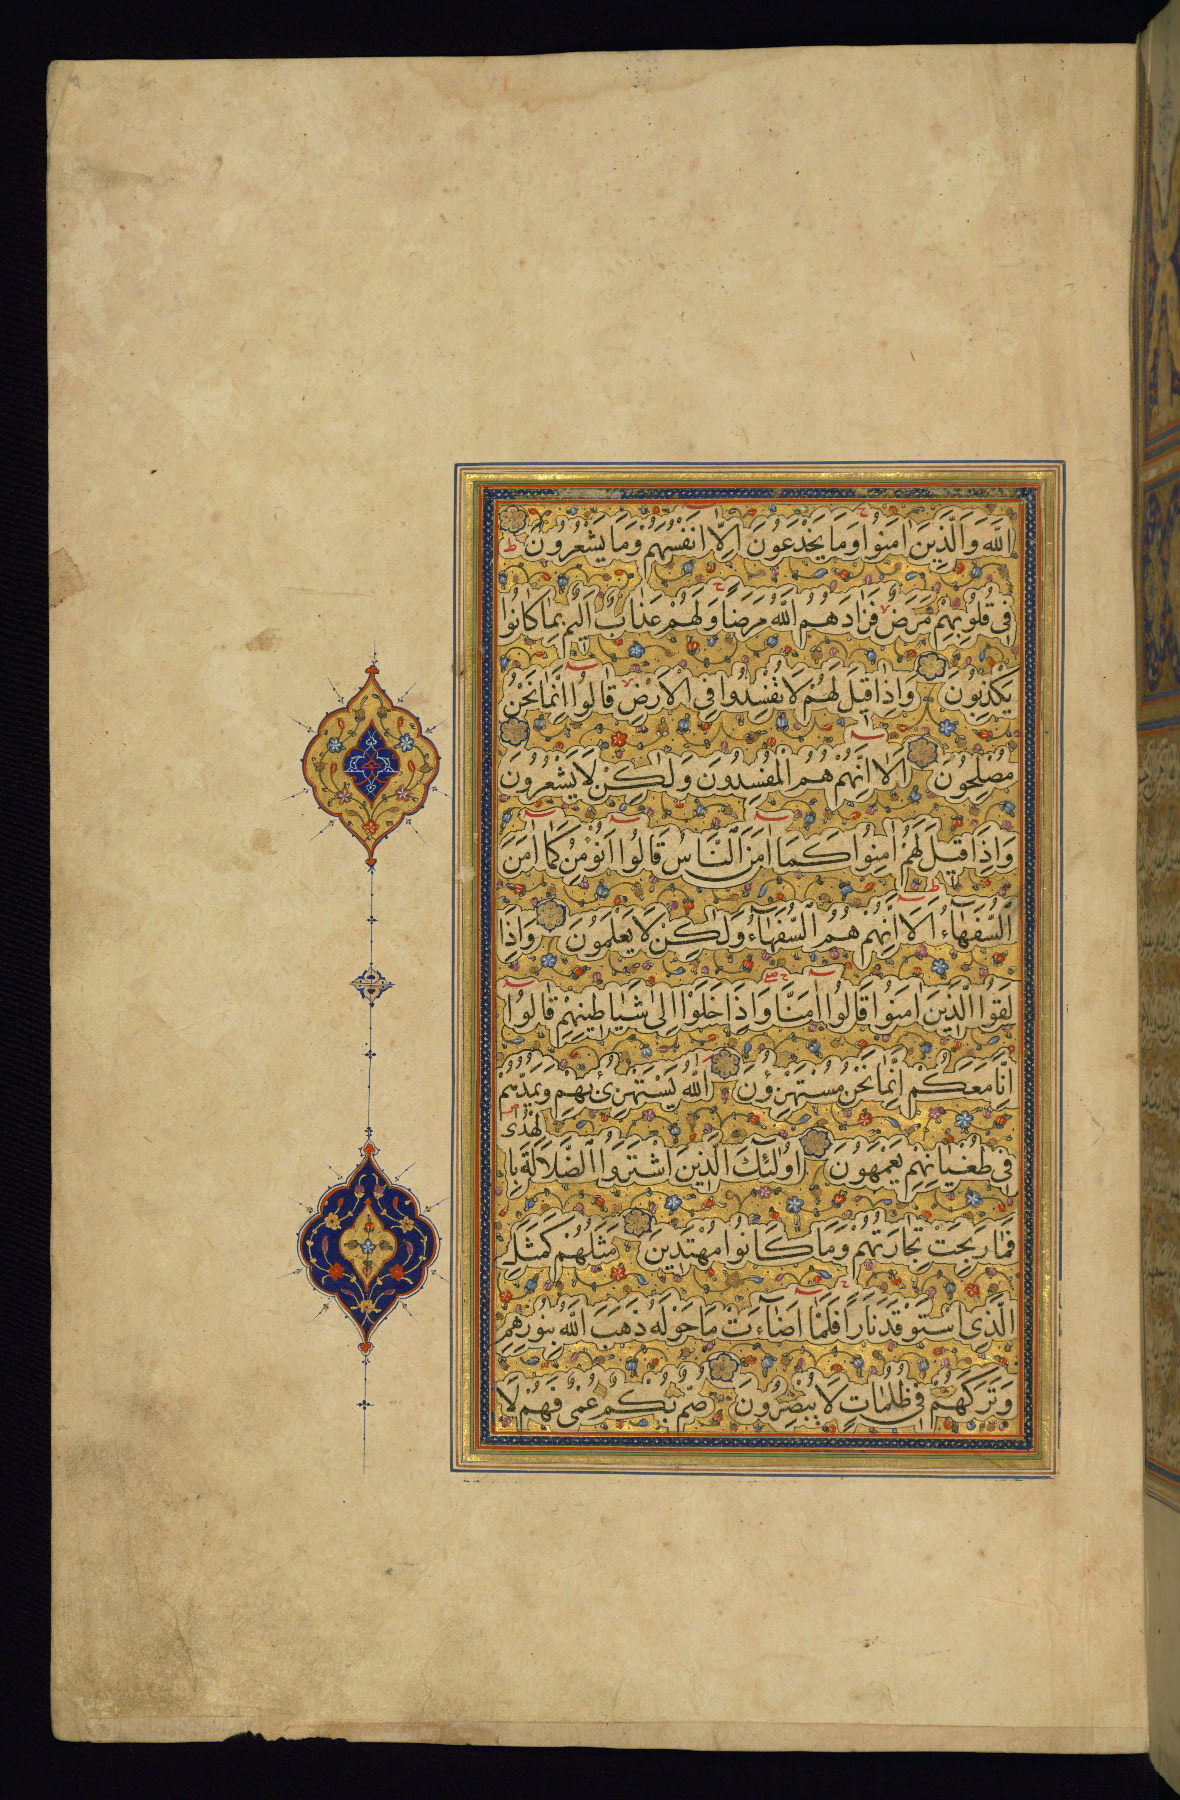 اللَّهَ وَالَّذِينَ اٰمَنُوا وَمَا يَخْدَعُونَ اِلَّا اَنْفُسَهُمْ وَمَا يَشْعُرُونَ ط
فِى قُلُوبِهِمْ مَرَضٌ فَزَادَهُمُ اللَّهُ مَرَضًا وَلَهُمْ عَذَابٌ اَلِيمٌ بِمَا كَانُوا
يَكْذِبُونَ وَاِذَا قِيلَ لَهُمْ لَا تُفْسِدُوا فِى الْاَرْضِ قَالُوا اِنَّمَا نَحْنُ
مُصْلِحُونَ اَلَا اِنَّهُمْ هُمُ الْمُفْسِدُونَ وَلٰكِنْ لَا يَشْعُرُونَ
وَاِذَا قِيلَ لَهُمْ اٰمِنُوا كَمَا اٰمَنَ النَّاسُ قَالُوا اَنُؤْمِنُ كَمَا اٰمَنَ
السُّفَهَآءُ اَلَا اِنَّهُمْ هُمُ السُّفَهَآءُ وَلٰكِنْ لَا يَعْلَمُونَ وَاِذَا
لَقُوا الَّذِينَ اٰمَنُوا قَالُوا اٰمَنَّا وَاِذَا خَلَوْا اِلٰى شَيَاطِينِهِمْ قَالُوا
اِنَّا مَعَكُمْ اِنَّمَا نَحْنُ مُسْتَهْزِؤُنَ اَللَّهُ يَسْتَهْزِئُ بِهِمْ وَيَمُدُّهُمْ
فِى طُغْيَانِهِمْ يَعْمَهُونَ اُولٰٓئِكَ الَّذِينَ اشْتَرَوُا الضَّلَالَةَ بِالْهُدٰى
فَمَا رَبِحَتْ تِجَارَتُهُمْ وَمَا كَانُوا مُهْتَدِينَ مَثَلُهُمْ كَمَثَلِ
الَّذِى اسْتَوْقَدَ نَارًا فَلَمَّا اَضَآءَتْ مَا حَوْلَهُ ذَهَبَ اللَّهُ بِنُورِهِمْ
وَتَرَكَهُمْ فِى ظُلُمَاتٍ لَا يُبْصِرُونَ صُمٌّ بُكْمٌ عُمْىٌ فَهُمْ لَا